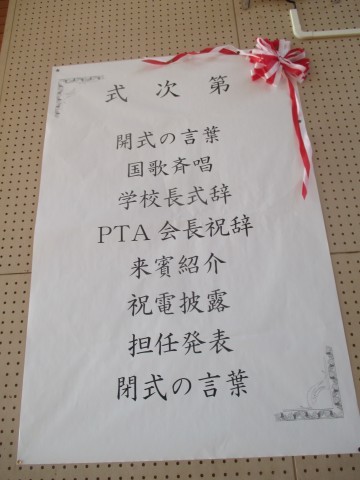 式次第
開式の言葉
国歌斉唱
学校長式辞
PTA会長祝辞
来賓紹介
祝電披露
担任発表
閉式の言葉